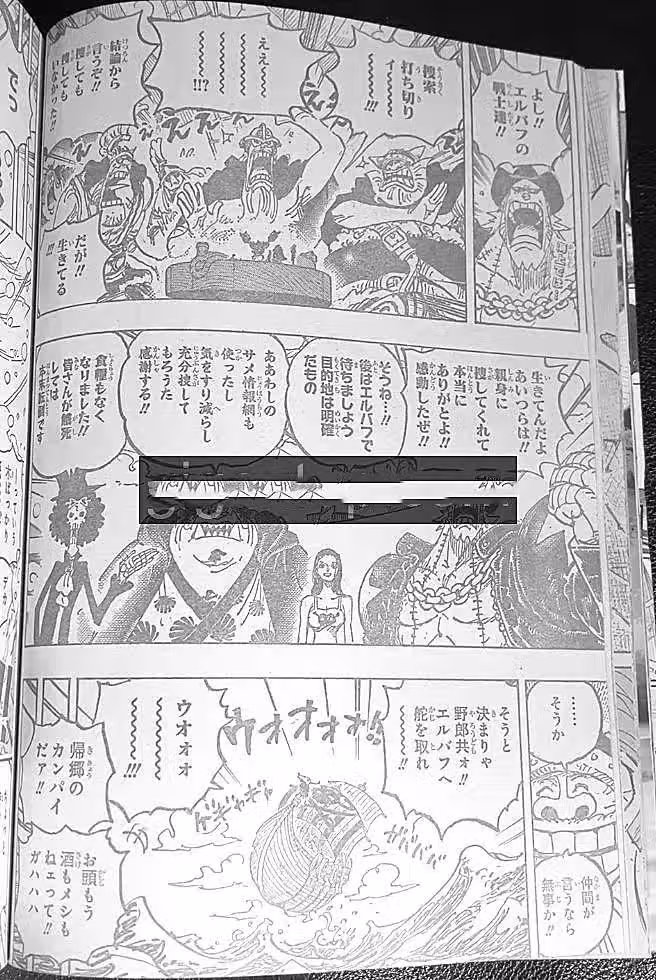 よし!!
エルバフの
戦士達!!
捜索
打ち切り
イ〜〜〜!!!
ええ〜〜〜
〜〜〜〜
〜〜〜〜
!!!?
ええええ
結論から
言うぞ!!
捜しても
捜しても
いなかった!!
だが!!
生きてる
!!!
生きてんだよ
あいつらは!!
親身に
捜してくれて
ありがとよ!!
本当に
感動したぜ!!
そうね…!!
後はエルバフで
待ちましょう
目的地は明確
だもの
ああわしの
サメ情報網も
使ったし
気をすり減らし
充分捜して
もろうた
感謝する!!
食糧もなく
なりました!!
皆さんが餓死
しては
本末転倒です
……
そうか
仲間が
言うなら
無事か!!
そうと
決まりゃ
野郎共ォ!!
エルバフへ
舵を取れ
ウオオオ
〜〜〜〜
〜〜〜!!!
ウオオオオ!!
ギャギャ
ギャギャ
帰郷の
カンパイ
だァ!!
お頭もう
酒もメシも
ねェって!!
ガハハハ